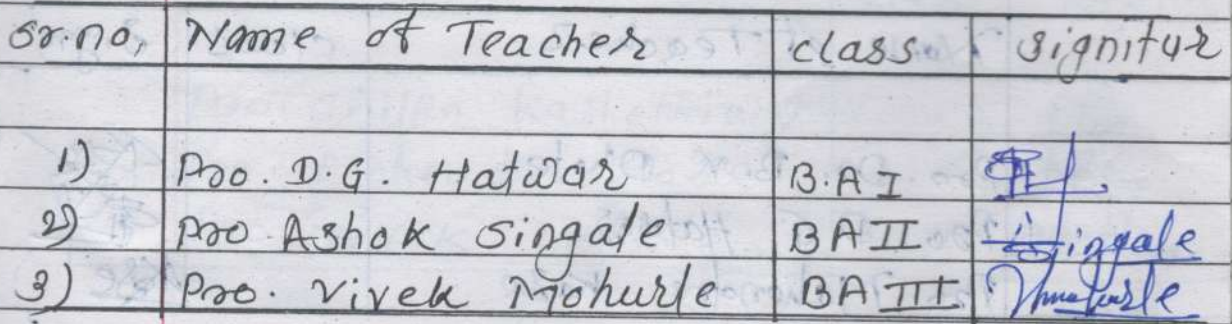 sr.no, Name of Teacher class signitur
1) Pro. D.G. Hatwar B.A I
2) Pro. Ashok Singale BA II Singale
3) Pro. Vivek Mohurle BA III